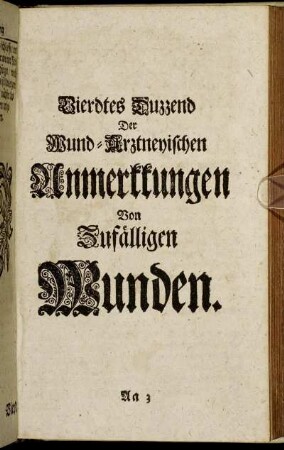 Vierdtes Duzzend
Der
Wund-Arztneyischen
Anmerkkungen
Von
Zufälligen
Wunden.
Aa 3